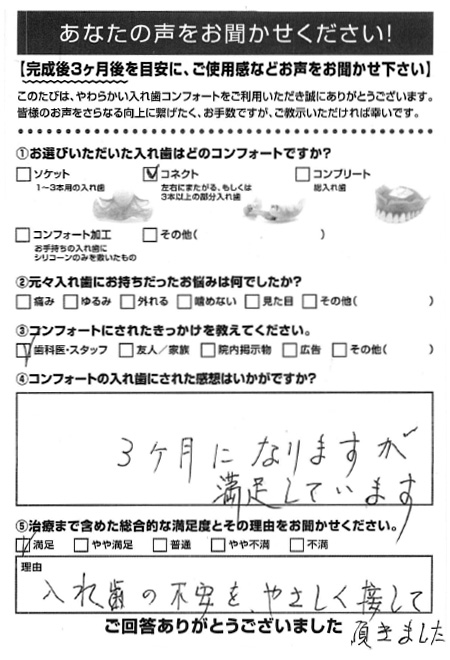 あなたの声をお聞かせください!
【完成後3ヶ月後を目安に、ご使用感などお声をお聞かせ下さい】
このたびは、やわらかい入れ歯コンフォートをご利用いただき誠にありがとうございます。
皆様のお声をさらなる向上に繋げたく、お手数ですが、ご教示いただければ幸いです。
①お選びいただいた入れ歯はどのコンフォートですか?
□ソケット ☑コネクト □コンプリート
1〜3本用の入れ歯 左右にまたがる、もしくは 総入れ歯
3本以上の部分入れ歯
□コンフォート加工 □その他( )
お手持ちの入れ歯に
シリコーンのみを敷いたもの
②元々入れ歯にお持ちだったお悩みは何でしたか?
□痛み □ゆるみ □外れる □噛めない □見た目 □その他( )
③コンフォートにされたきっかけを教えてください。
☑歯科医・スタッフ □友人/家族 □院内掲示物 □広告 □その他( )
④コンフォートの入れ歯にされた感想はいかがですか?
3ヶ月になりますが
満足しています
⑤治療まで含めた総合的な満足度とその理由をお聞かせください。
☑満足 □やや満足 □普通 □やや不満 □不満
理由
入れ歯の不安を、やさしく接して
頂きました
ご回答ありがとうございました